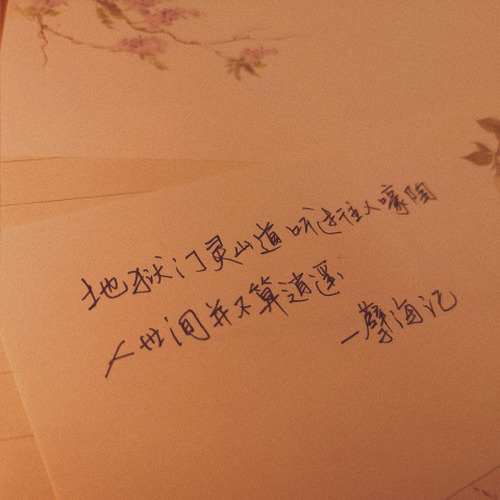 地狱门灵山道听过往人嚎陶
人世间并不算逍遥
—孽海记